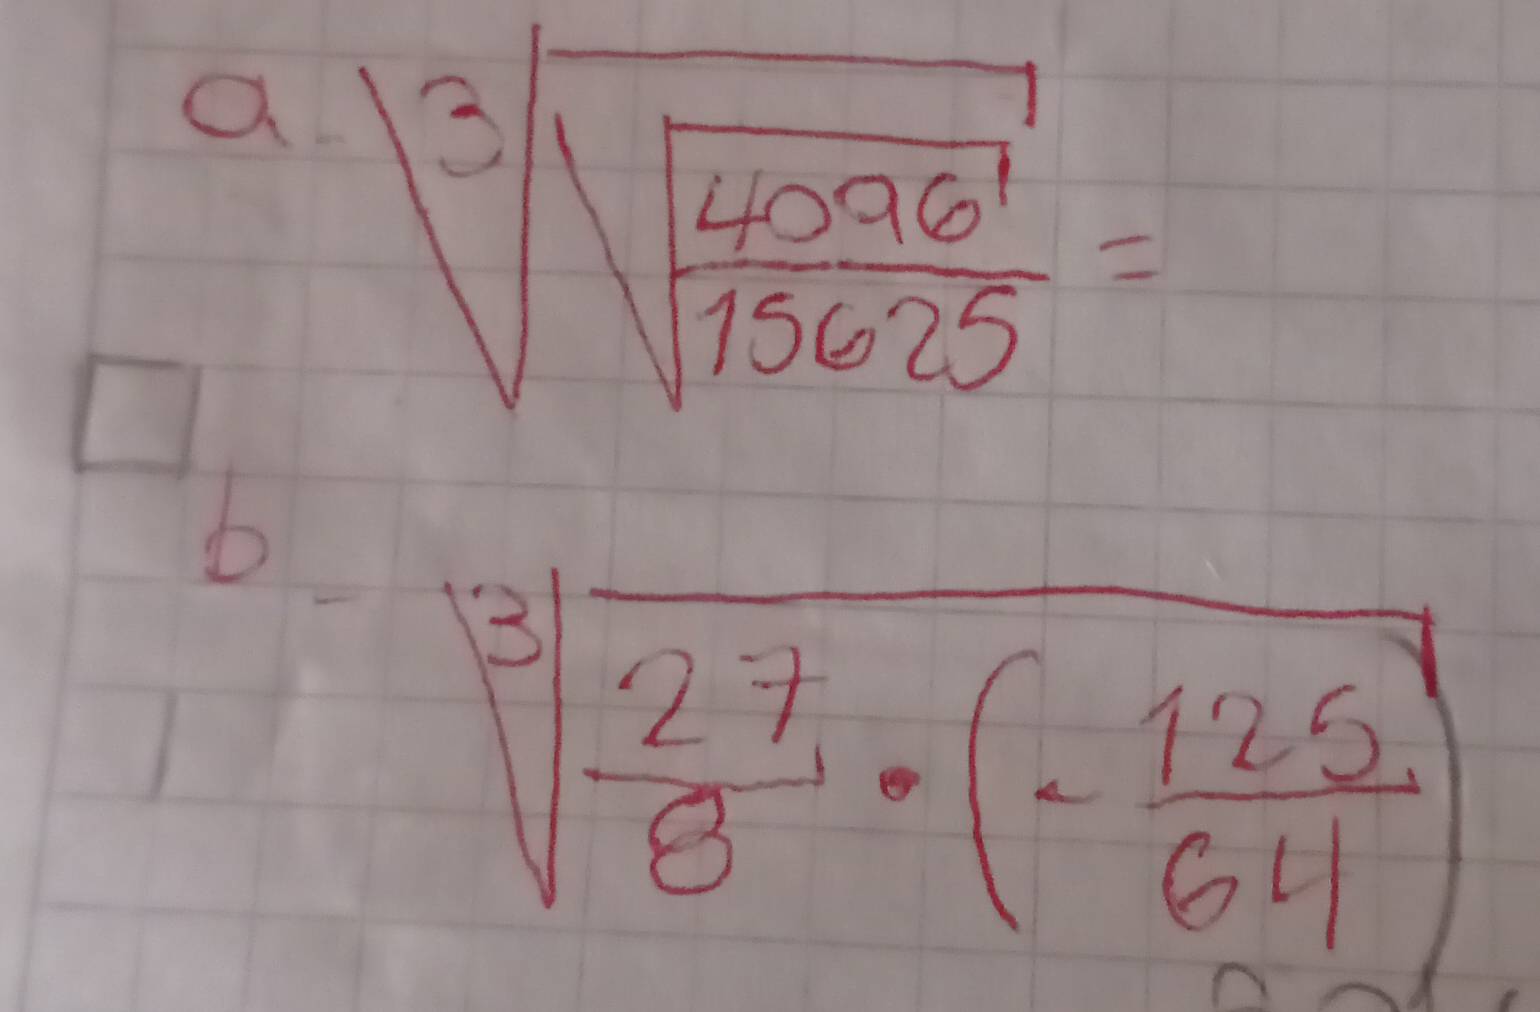 a - ∛√(4096/15625) =
b - ∛(27/8 • (- 125/64))